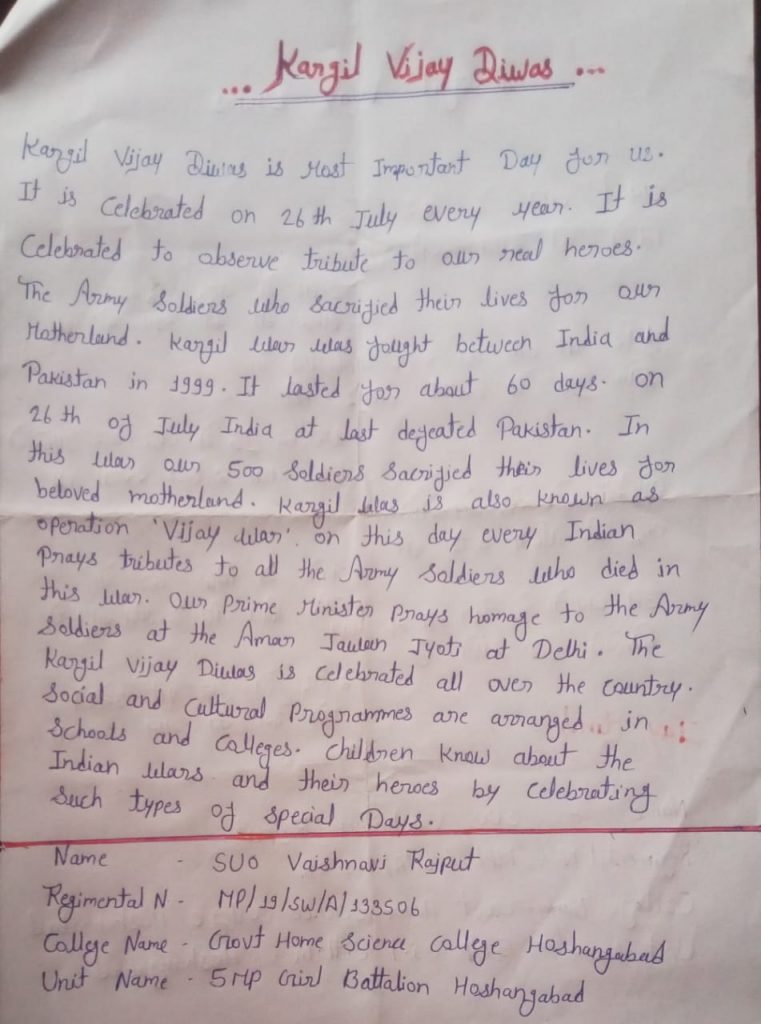 ... Kargil Vijay Diwas ...
Kargil Vijay Diwas is Most Important Day for us.
It is Celebrated on 26 th July every year. It is
Celebrated to observe tribute to our real heroes.
The Army Soldiers who Sacrified their lives for our
Motherland. Kargil War was fought between India and
Pakistan in 1999. It lasted for about 60 days. on
26 th of July India at last defeated Pakistan. In
this War our 500 Soldiers Sacrified their lives for
beloved motherland. Kargil Was is also known as
operation 'Vijay War'. on this day every Indian
Prays tributes to all the Army Soldiers who died in
this War. Our Prime Minister Prays homage to the Army
Soldiers at the Amar Jawan Jyoti at Delhi. The
Kargil Vijay Diwas is Celebrated all over the Country.
Social and Cultural Programmes are arranged in
Schools and Colleges. Children Know about the
Indian Wars and their heroes by Celebrating
Such types of Special Days.
Name - SUO Vaishnavi Rajput
Regimental N - MP/19/SW/A/133506
College Name - Govt Home Science College Hoshangabad
Unit Name - 5 MP Girl Battalion Hoshangabad